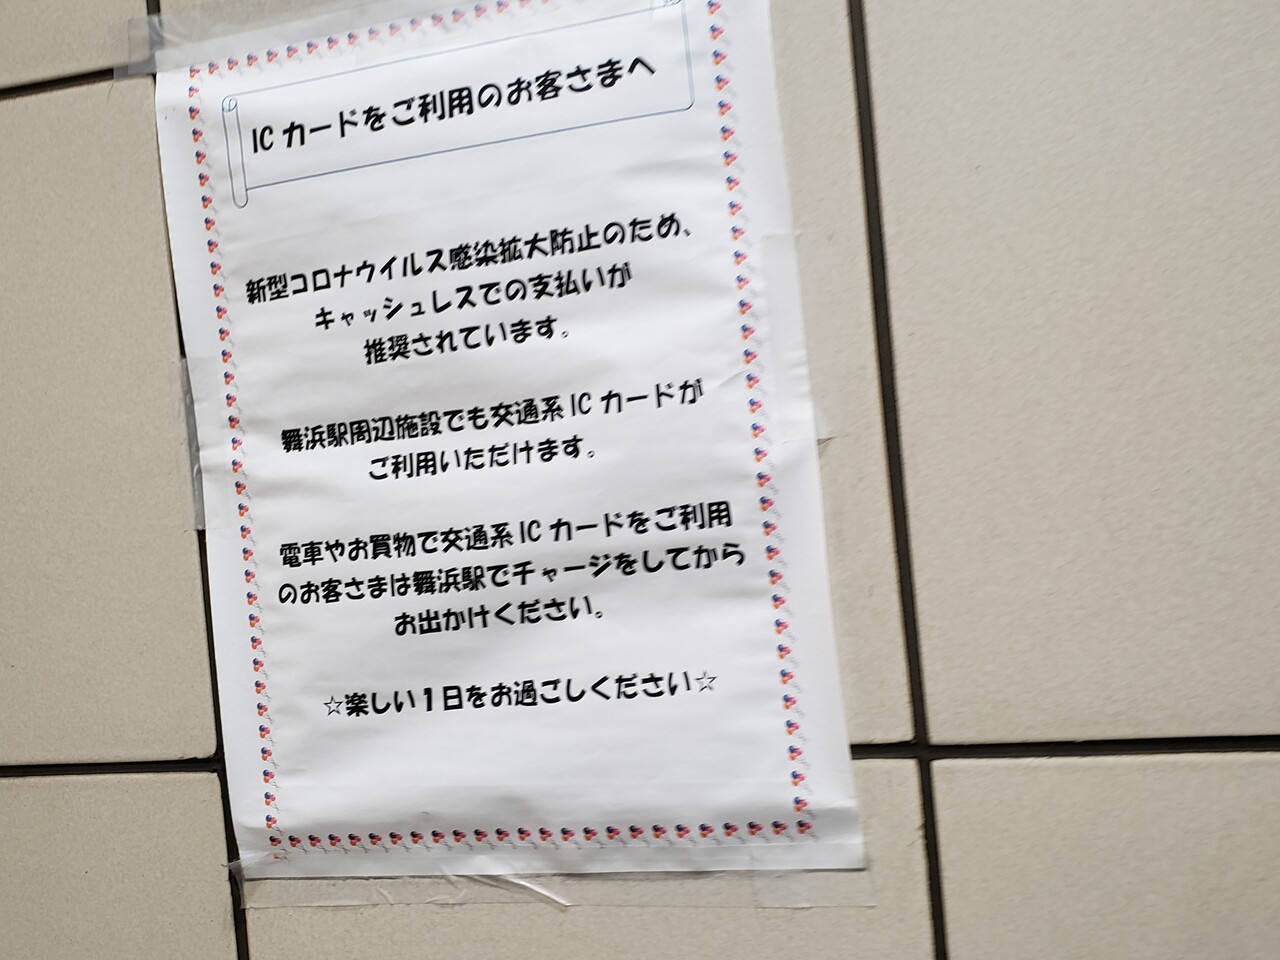 ICカードをご利用のお客さまへ
新型コロナウイルス感染拡大防止のため、
キャッシュレスでの支払いが
推奨されています。
舞浜駅周辺施設でも交通系ICカードが
ご利用いただけます。
電車やお買物で交通系ICカードをご利用
のお客さまは舞浜駅でチャージをしてから
お出かけください。
☆楽しい1日をお過ごしください☆